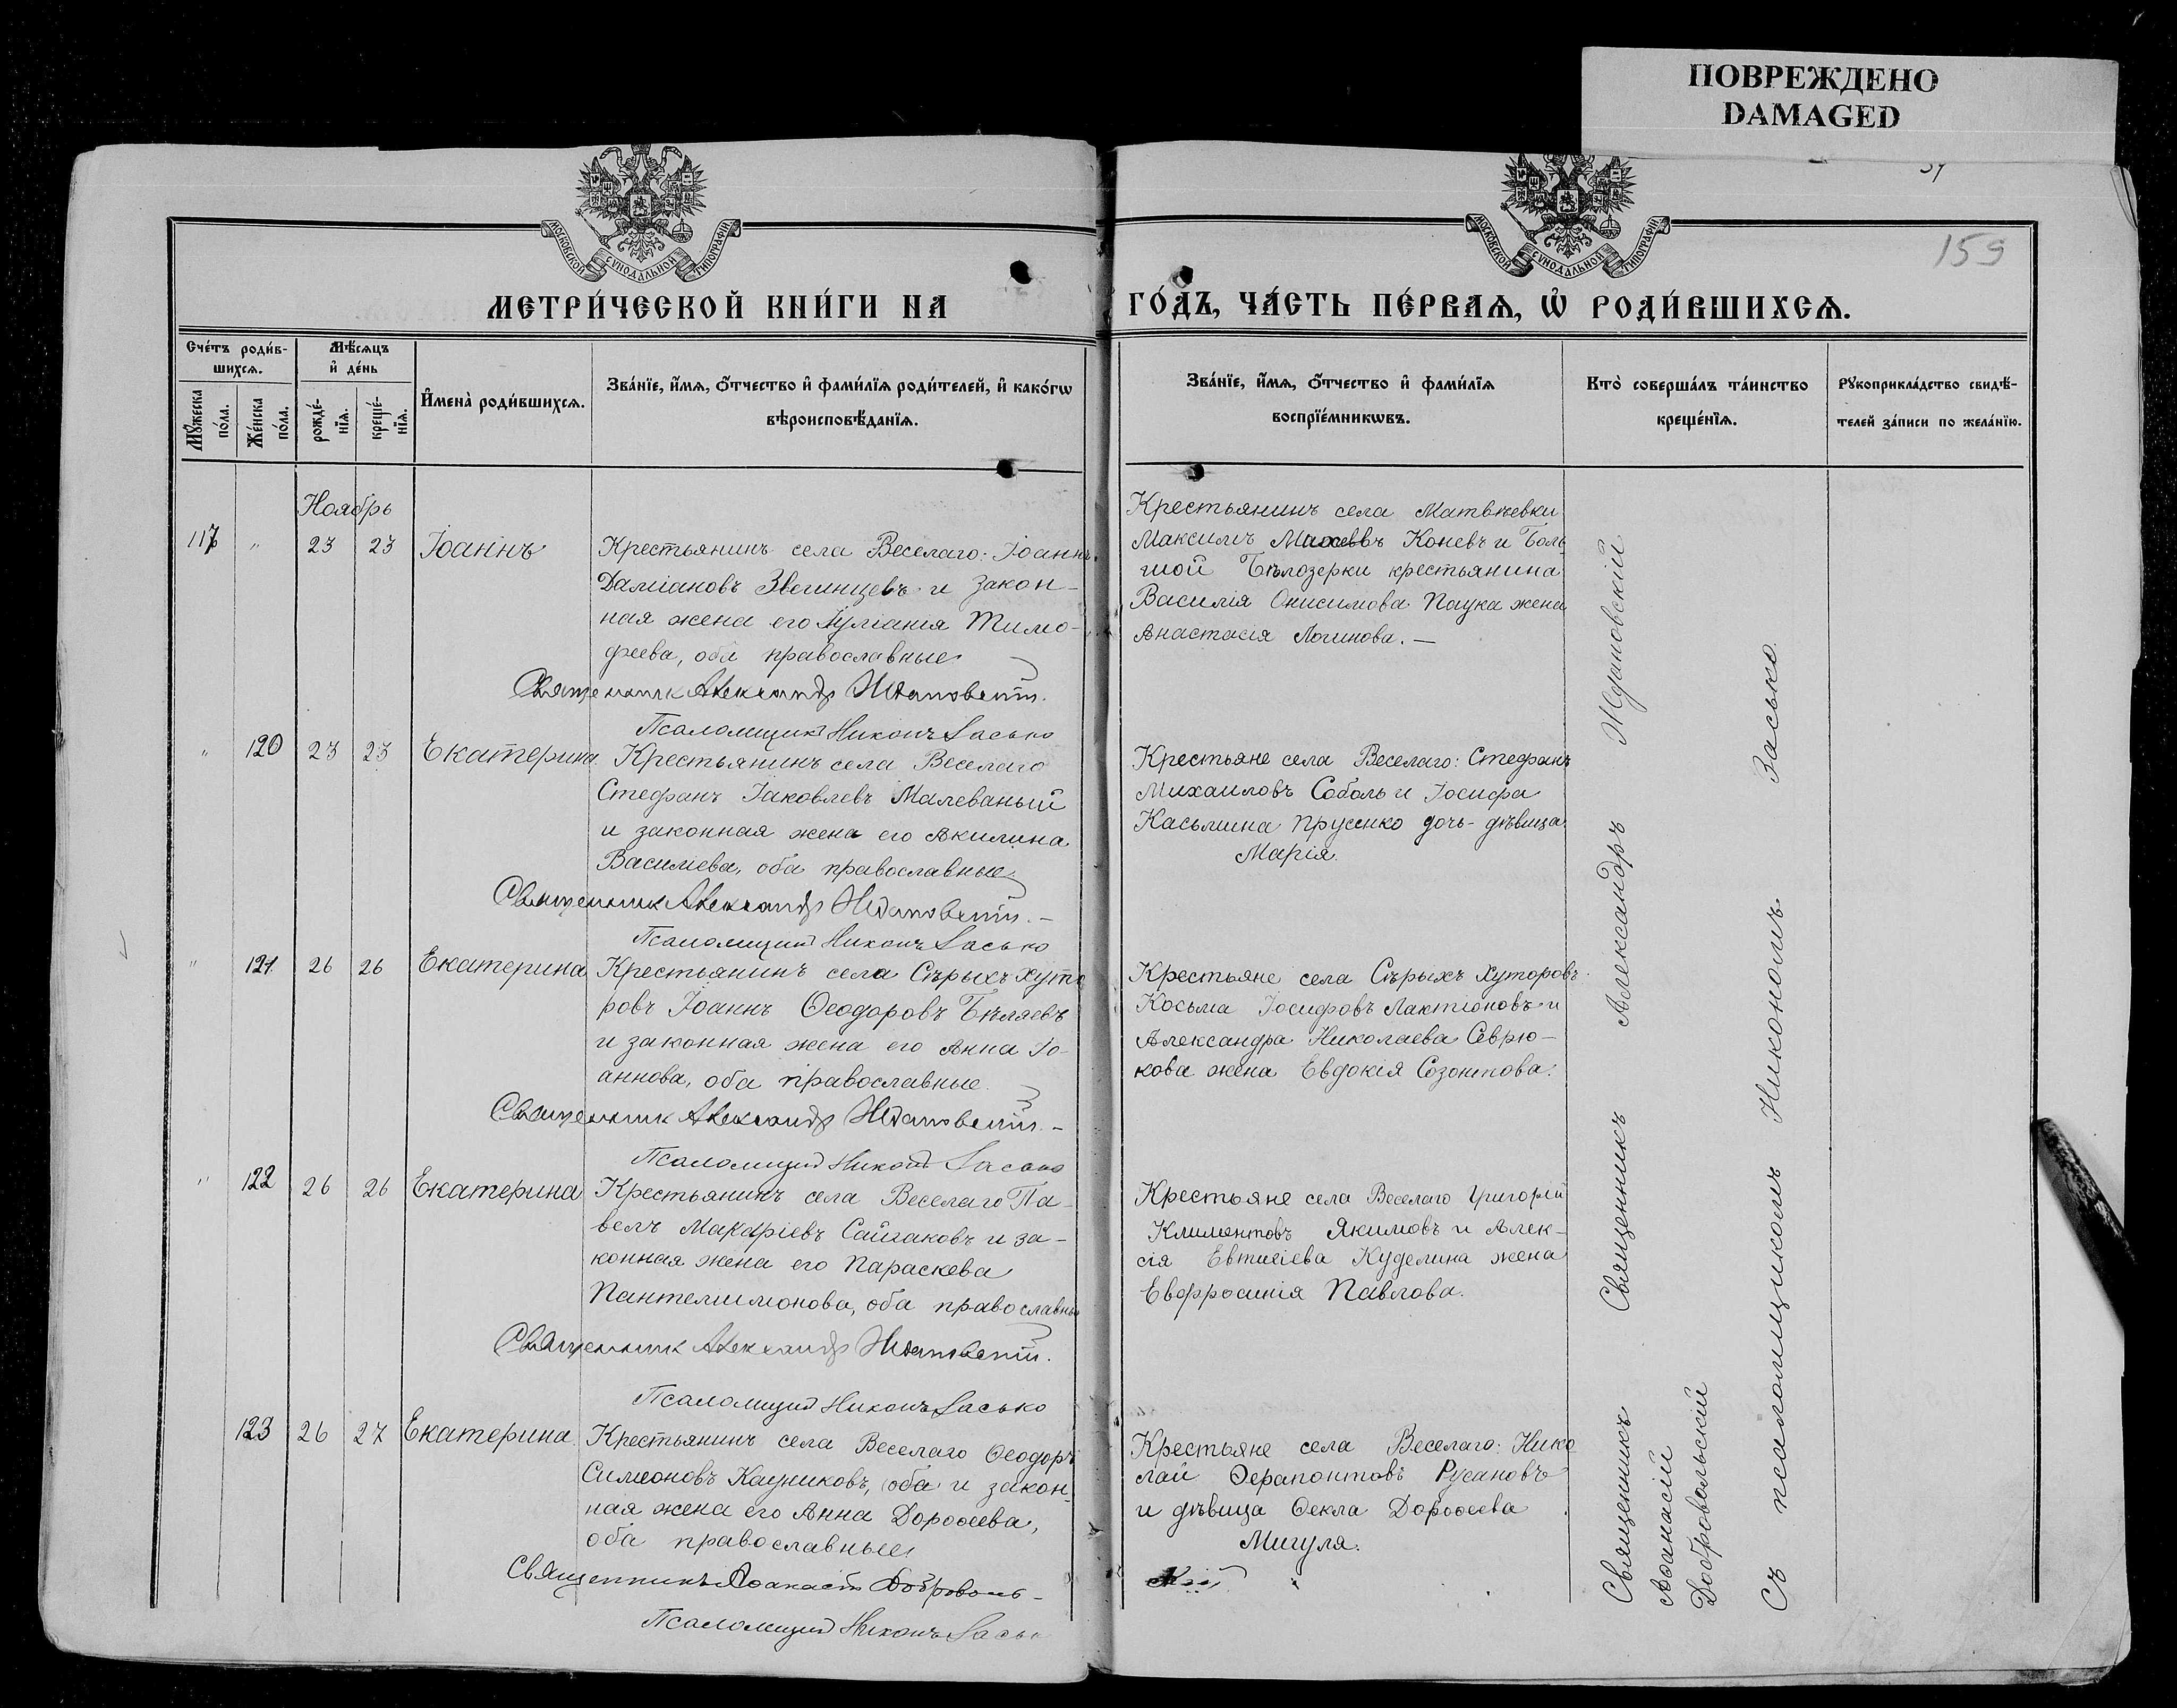 ПОВРЕЖДЕНО
DAMAGED
159
МОСКОВСКОЙ СѴНОДАЛЬНОЙ ТИПОГРАФІИ
МОСКОВСКОЙ СѴНОДАЛЬНОЙ ТИПОГРАФІИ
МЕТРИ́ЧЕСКОЙ КНИ́ГИ НА ГО́ДЪ, ЧА́СТЬ ПЕ́РВАѦ, Ѡ҆ РОДИ́ВШИХСѦ.
Сче́тъ роди́в-
шихсѧ.
Мꙋ́жеска по́ла.
Же́нска по́ла.
Мѣ́сѧцъ
и҆ де́нь
рожде́-
нїѧ.
креще́-
нїѧ.
И҆мена̀ роди́вшихсѧ.
Зва́нїе, и҆́мѧ, ѻ҆́тчество и҆ фами́лїѧ роди́телей, и҆ како́гѡ
вѣроисповѣ́данїѧ.
Зва́нїе, и҆́мѧ, ѻ҆́тчество и҆ фами́лїѧ
воспрїе́мникѡвъ.
Кто̀ соверша́лъ та́инство
креще́нїѧ.
Рꙋкоприкла́дство свидѣ́-
телей за́писи по жела́нїю.
Ноябрь
117 " 23 23 Іоаннъ
Крестьянинъ села Веселаго: Іоаннъ
Даміановъ Звегинцевъ и закон-
ная жена его Іуліанія Тимо-
феева, оба православные
Священникъ Александръ Ждановскій.
Псаломщикъ Никонъ Засько
Крестьянинъ села Матвѣевки
Максимъ Коневъ и Боль
шой Бѣлозерки крестьянина
Василія Онисимова Паука жена
Анастасія Логинова. —
" 120 23 23 Екатерина
Крестьянинъ села Веселаго
Стефанъ Іаковлевъ Малеваный
и законная жена его Акилина
Василіева, оба православные.
Священникъ Александръ Ждановскій. —
Псаломщикъ Никонъ Засько
Крестьяне села Веселаго: Стефанъ
Михаиловъ Соболь и Іосифа
Касьмина Прусенко дочь-дѣвица
Марія.
" 121 26 26 Екатерина
Крестьянинъ села Сѣрыхъ Хуто
ровъ Іоаннъ Ѳеодоровъ Бѣляевъ
и законная жена его Анна Іо-
аннова, оба православные.
Священникъ Александръ Ждановскій. —
Псаломщикъ Никонъ Засько
Крестьяне села Сѣрыхъ Хуторовъ
Косьма Іосифовъ Лактіоновъ и
Александра Николаева Севрю-
кова жена Евдокія Созонтова.
" 122 26 26 Екатерина
Крестьянинъ села Веселаго Па-
велъ Макаріевъ Сайгаковъ и за-
конная жена его Параскева
Пантелеимонова, оба православны
Священникъ Александръ Ждановскій.
Псаломщикъ Никонъ Засько
Крестьяне села Веселаго Григорій
Климентовъ Якимовъ и Алек-
сія Евтихіева Куделина жена
Евфросинія Павлова.
123 26 27 Екатерина
Крестьянинъ села Веселаго Ѳеодоръ
Симеоновъ оба и закон-
ная жена его Анна Дороѳеева,
оба православные
Священникъ Аѳанасій Доброволь-
Псаломщикъ Никонъ Засько
Крестьяне села Веселаго: Нико
лай Ѳерапонтовъ Русановъ
и дѣвица Ѳекла Дороѳеева
Мигуля.
Священникъ Александръ Ждановскій
Священникъ
Аѳанасій
Добровольскій
Съ псаломщикомъ Никономъ Засько.